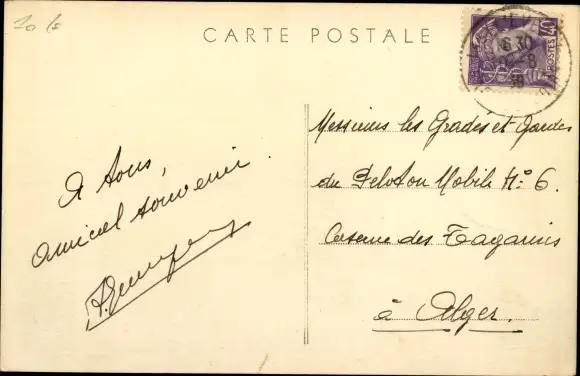 CARTE POSTALE
POSTES
A tous,
amical souvenir.
Messieurs les Gradés et Gardes
du Peloton Mobile N° 6.
Caserne des Tagarins
à Alger.